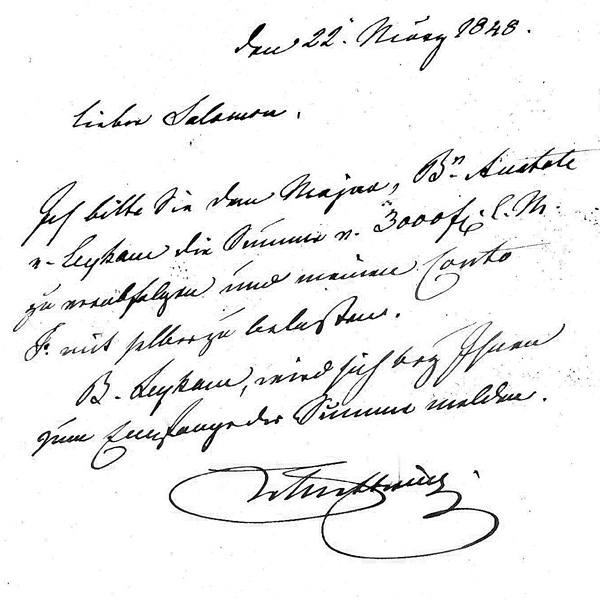 den 22. März 1848.
Lieber Salomon.
Ich bitte Sie dem Major, Bn.
v. Leykam die Summe v. 3000 fl. C. M.
zu verabfolgen und meinen Conto
mit selber zu belasten.
B. Leykam, wird sich bey Ihnen
zum Empfange der Summe melden.